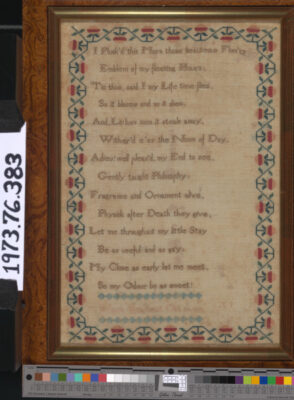 I Pluck'd this Morn these beauteous Flow'rs
Emblem of my fleeting Hours;
'Tis thus, said I my Life time flies,
So it blooms and so it dies.
And, Lo! how soon it steals away,
Wither'd e'er the Noon of Day.
Adieu! well pleas'd, my End to see,
Gently taught Philosophy:
Fragrance and Ornament alive,
Physick after Death they give,
Let me throughout my little Stay
Be as useful and as gay;
My Close as early let me meet,
So my Odour be as sweet!
1973.76.383